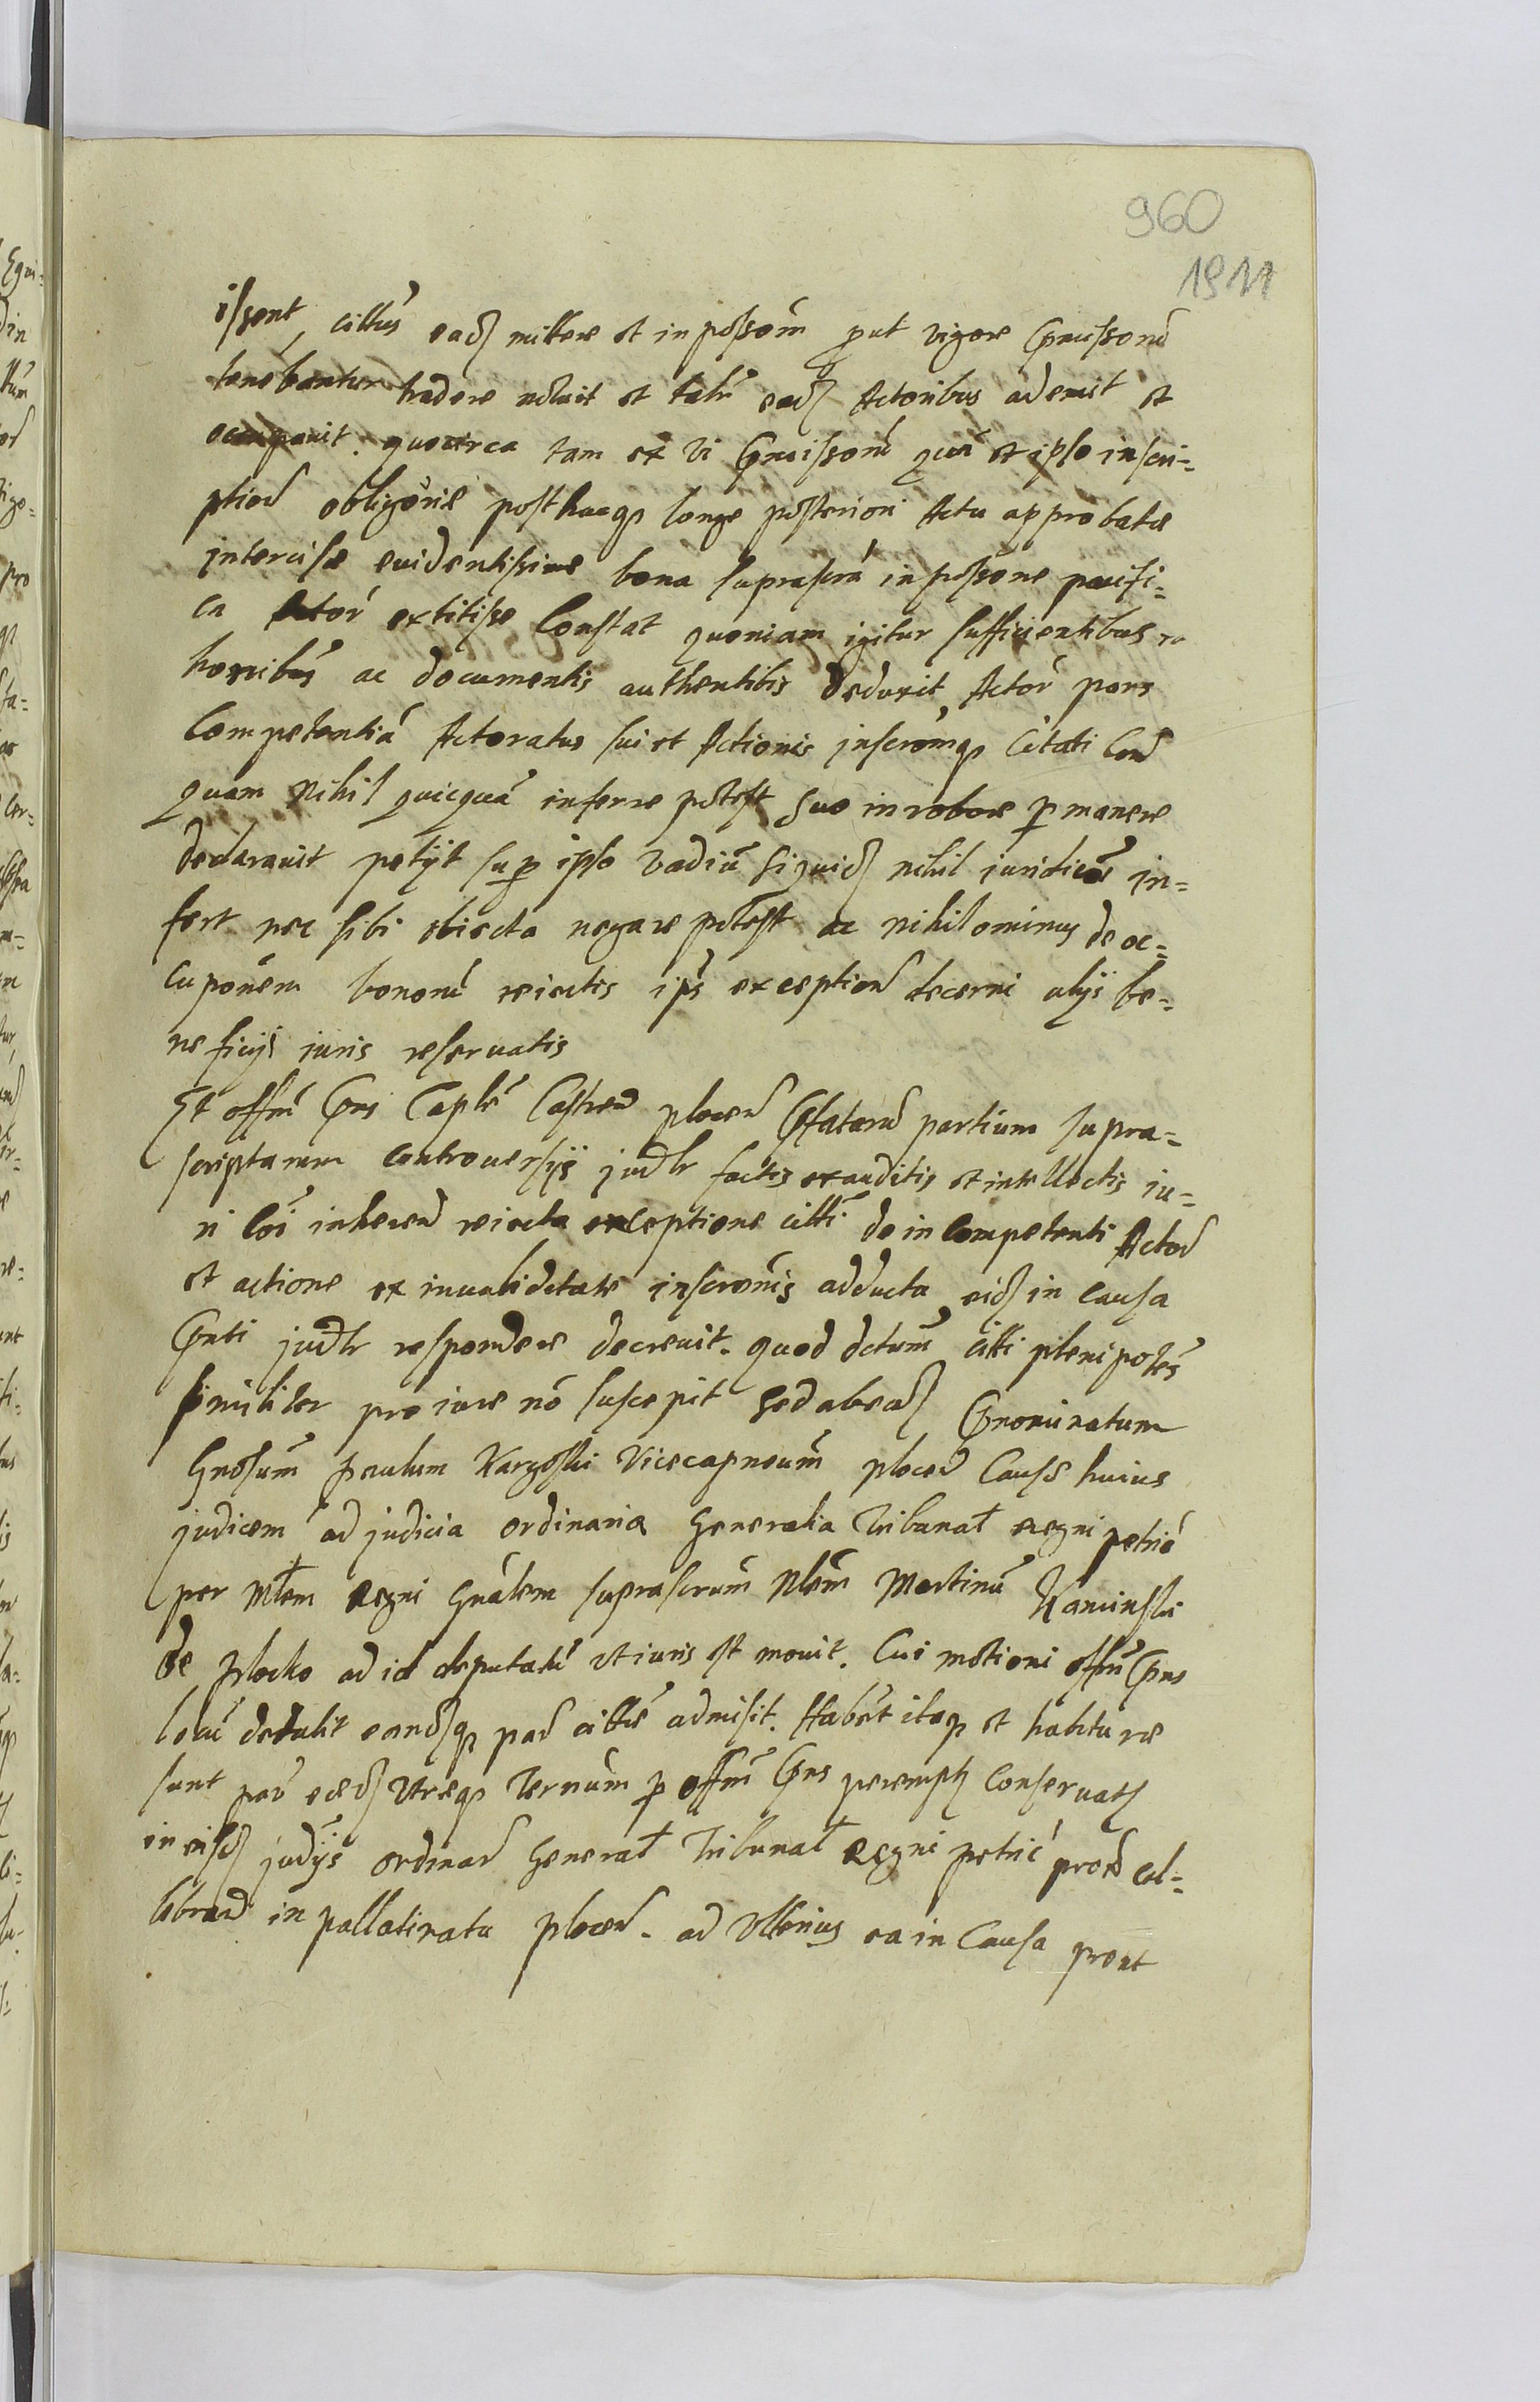 960
1911
issent, cittus eadz mittere et in possom put vigore Pmissorū
tenebantur tradere noluit et talr eadz Actoribus ademit et
occupavit. quocirca tam ex vi Pmissorū quā et ipso inscri-
ption obligorie posthacqz longe posteriori Actu approbatæ
intercisæ evidentissime bona suprascrā in possone pacifi-
ca Actor extitisse Constat quoniam igitur sufficientibus ra
tionibus ac documentis authenticis deduxit Actor pars
Competentiā Actoratus sui et Actionis inscromqz Citati Con
quam nihil quicquā inferre potest suo in robore pmanere
declaravit petijt sup ipso vadiū siquidz nihil iuridicē in=
fert nec sibi obiecta negare potest ac nihilominus de oc=
cuponem bonorū reiectis ips exception decerni alijs be=
neficijs iuris reservatis
Et offm Pns Captlē Castren plocen Pfatarū partium supra=
scriptarum Controversijs judlr factis exauditis et intellectis iu=
ri coi inheren reiecta exceptione citti de incompetenti Actor
et actione ex invaliditate inscronis adducta eidz in causa
Pnti judlr respondere decrevit. quod dctum citti plenipotēs
similiter pro iure nō suscepit sed ab eadz Pnominatum
Gnosum paulum Kargoski Vicecapneum plocen Causæ huius
judicem ad judicia ordinaria Generalia Tribunał Regni petric
per Młem Regni Gnalem suprascrum Nblem Martinū Kaminski
de plocko ad id deputatū ut iuris est movit. Cui motioni offm Pns
locū dedalit eandzqz par cittæ admisit. Habēt itaqz et habituræ
sunt par eædz utreqz Termum p offm Pns perempt conservatz
in eisdz judijs ordinar Generał Tribunał Regni petric pron cel=
lebran in pallatinatu plocen. ad ulterius ea in Causa prout